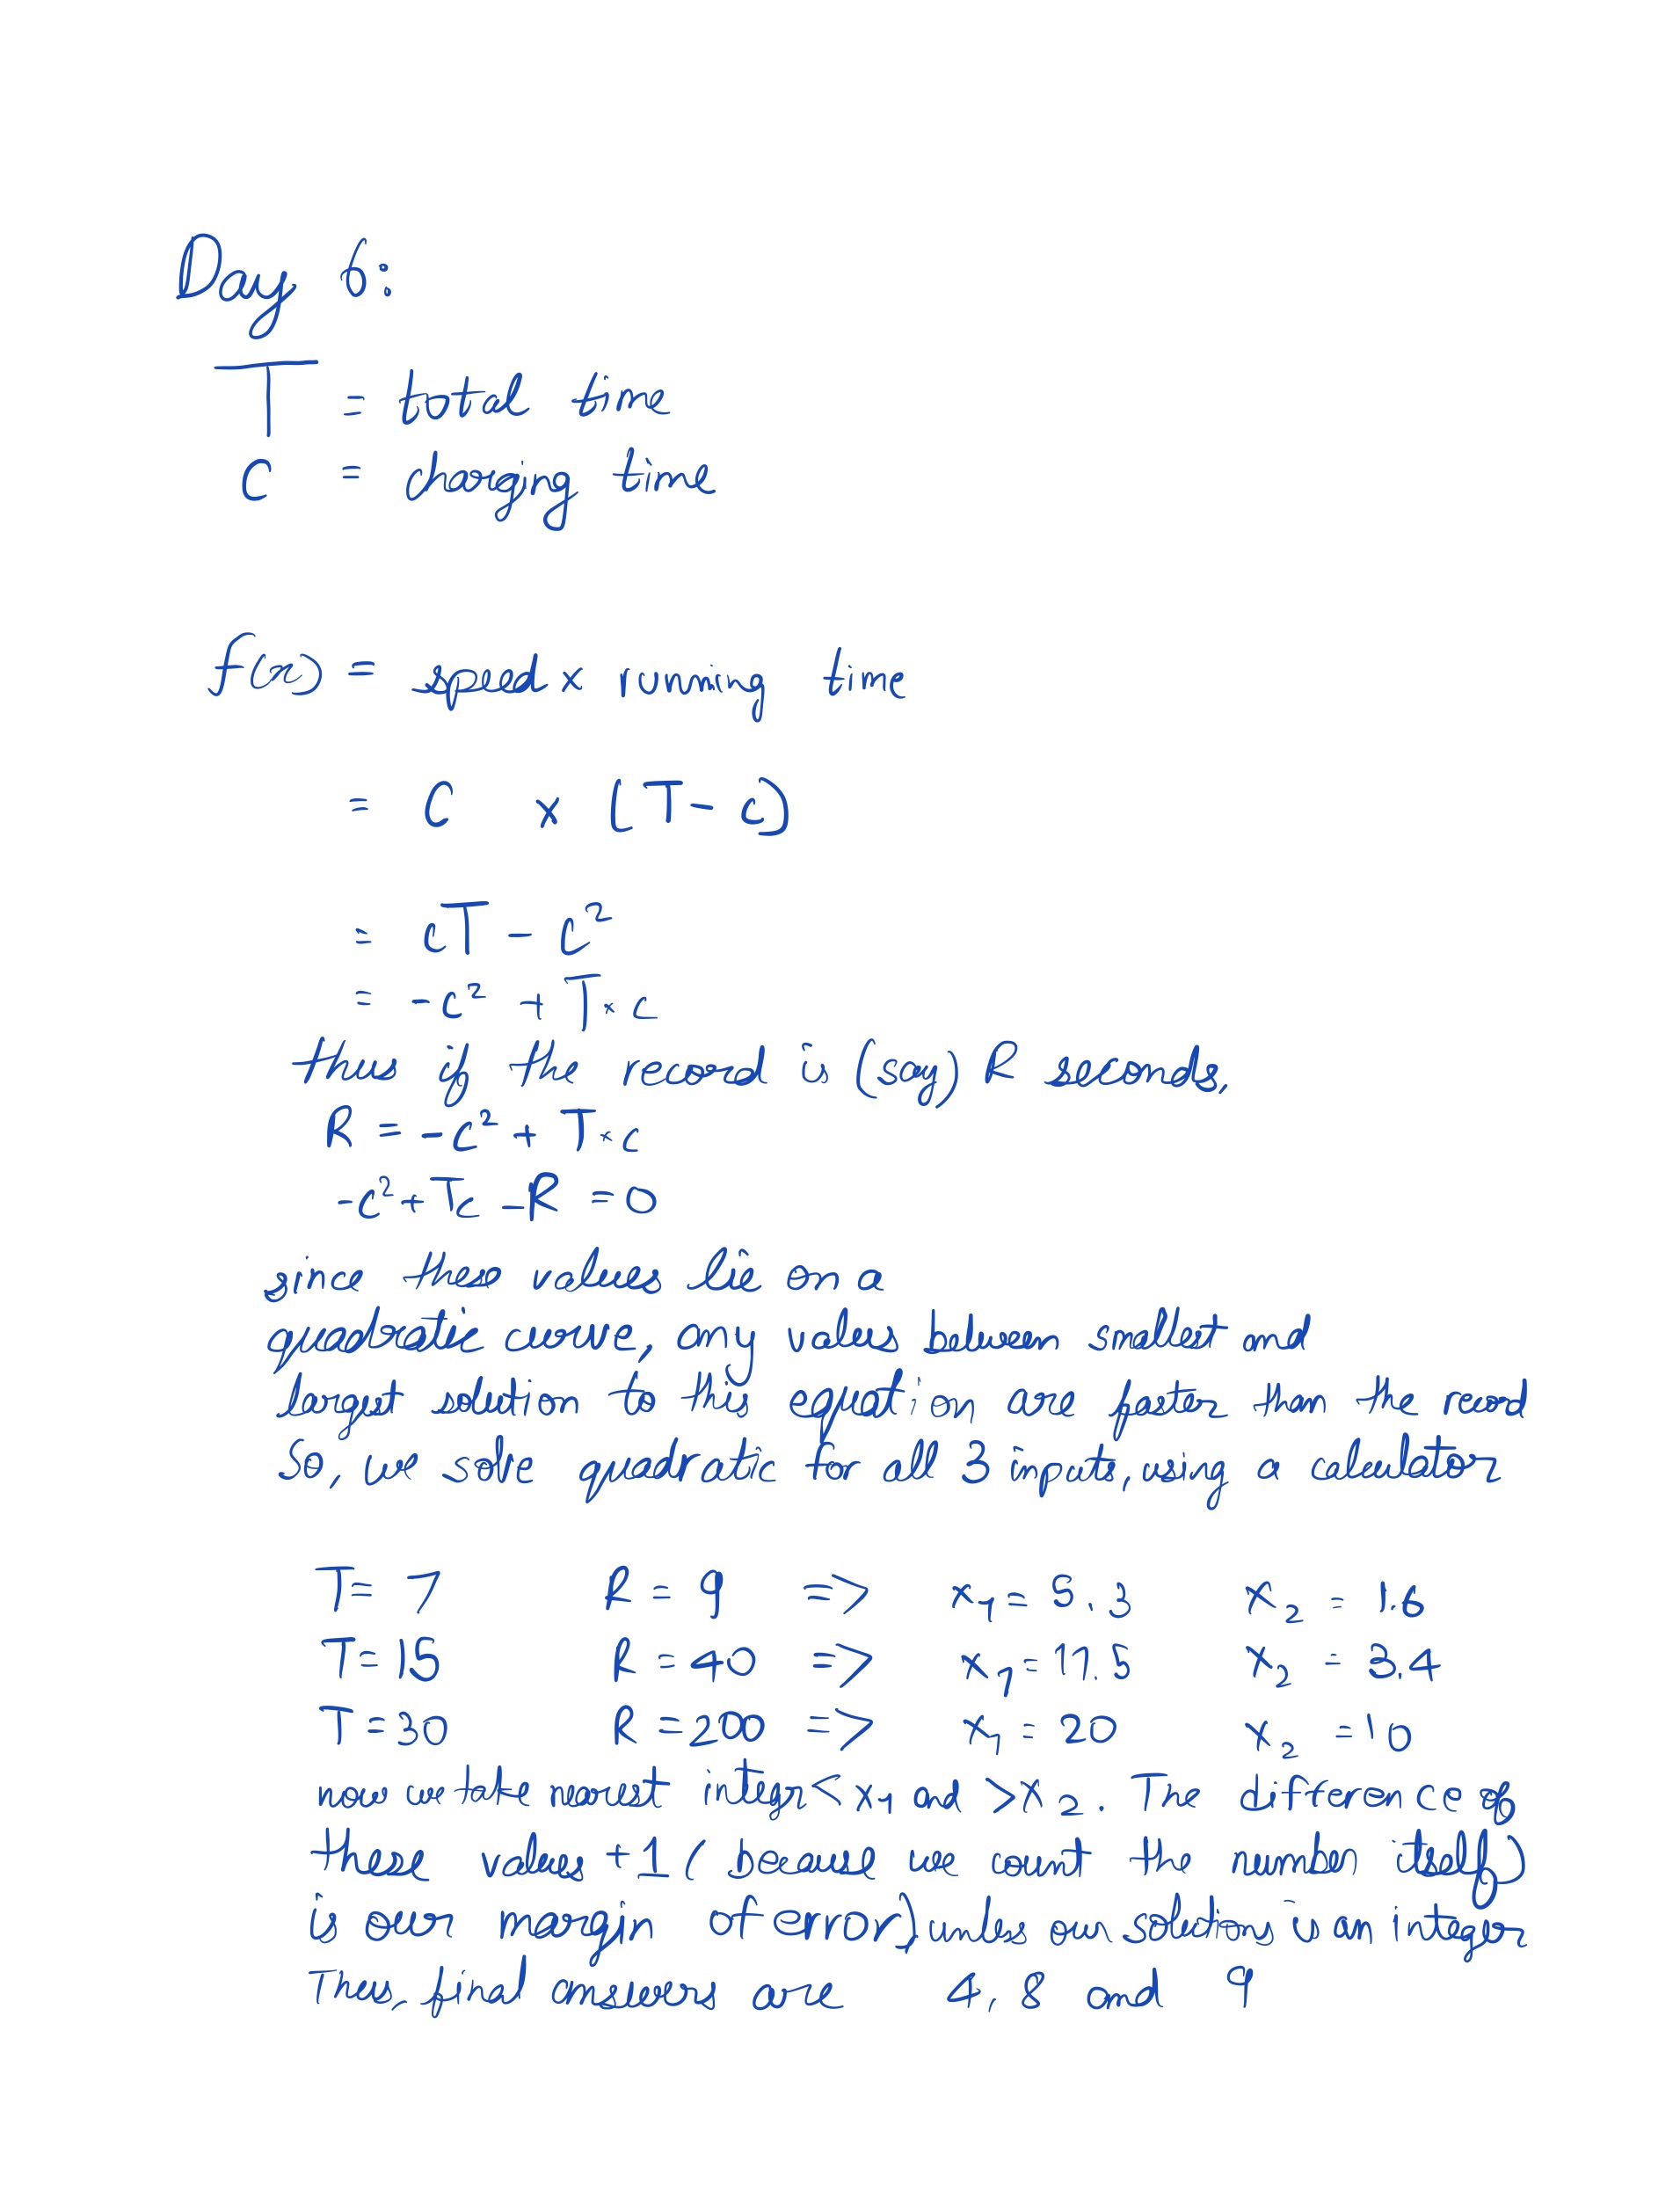 Day 6:
T = total time
C = charging time
f(x) = speed x running time
= C x (T - c)
= cT - c²
= -c² + T×c
thus if the record is (say) R seconds,
R = -c² + T×c
-c² + Tc - R = 0
since these values lie on a
quadratic curve, any values between smallest and
largest solution to this equation are faster than the record
So, we solve quadratic for all 3 inputs, using a calculator
T= 7 R = 9 => x₁ = 5.3 x₂ = 1.6
T= 15 R = 40 => x₁ = 11.5 x₂ = 3.4
T = 30 R = 200 => x₁ = 20 x₂ = 10
now we take nearest integr < x₁ and > x₂. The difference of
these values +1 ( because we count the number itself)
is our margin of error) unless our solutions is an integer
Thus, final answers are 4, 8 and 9